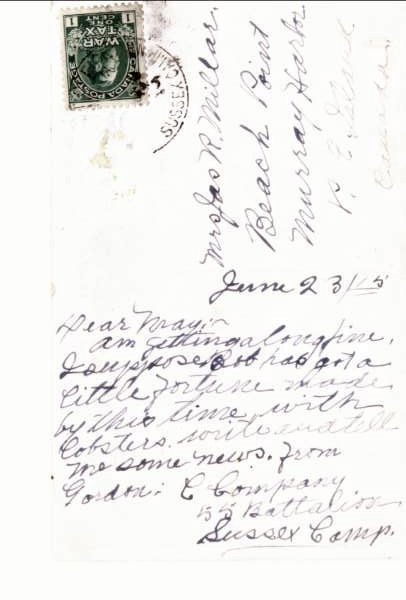 CANADA POSTAGE
WAR TAX
ONE CENT
1 1
SUSSEX
Mrs Jas R Millar.
Beach Point
Murray Harbor
P. E. Island
Canada
June 23/15
Dear May:-
am getting along fine.
I suppose Bob has got a
little fortune made
by this time with
lobsters. write and tell
me some news. from
Gordon: C Company
55 Battalion
Sussex Camp.